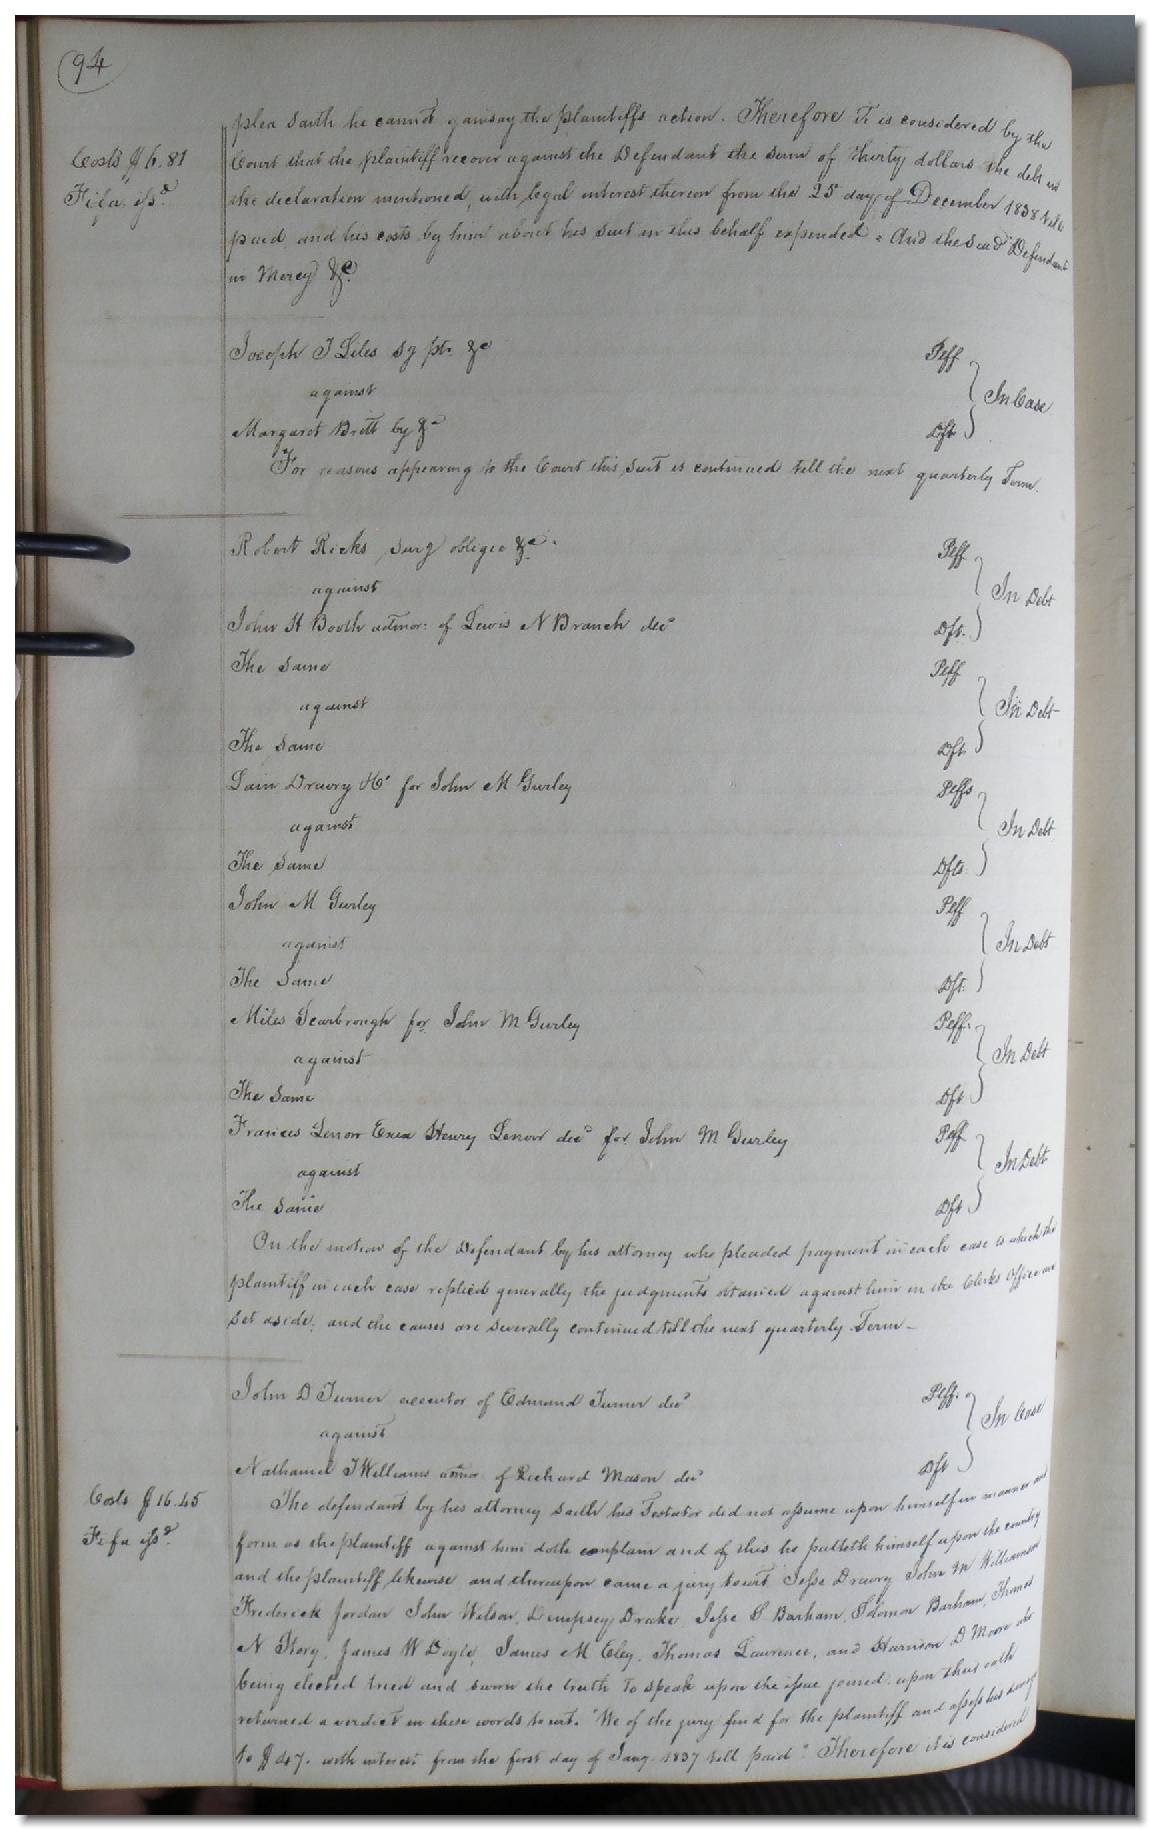 94
plea saith he cannot gainsay the plaintiffs action. Therefore it is considered by the
Costs $6.81
Court that the plaintiff recover against the Defendant the sum of thirty dollars the debt in
Fi fa issd
the declaration mentioned, with legal interest thereon from the 25 day of December 1838 till
paid, and his costs by him about his suit in this behalf expended. And the said Defendant
in Mercy &c.
Joseph T Liles sg ptr &c Plff
against In Case
Margaret Britt by &c Dft
For reasons appearing to the Court this suit is continued till the next quarterly Term.
Robert Ricks surg obligee &c. Plff
against In Debt
John H Booth admor: of Lewis N Branch decd Dft.
The Same Plff
against In Debt
The Same Dft
Drewry & Co for John M Gurley Plffs
against In Debt
The Same Dfts
John M Gurley Plff
against In Debt
The Same Dft.
Miles Scarbrough for John M Gurley Plff.
against In Debt
The Same Dft
Frances Lenow Exex Henry Lenow decd for John M Gurley Plff
against In Debt
The Same Dft
On the motion of the Defendant by his attorney who pleaded payment in each case to which the
plaintiff in each case replied generally the judgments obtained against him in the Clerks Office are
set aside; and the causes are severally continued till the next quarterly Term—
John D Turner executor of Edmund Turner decd Plff.
against In Case
Nathaniel T Williams admor of Richard Mason decd Dft
Costs $16.45
The defendant by his attorney saith his Testator did not assume upon himself in manner and
Fi fa issd.
form as the plaintiff against him doth complain and of this he putteth himself upon the country
and the plaintiff likewise, and thereupon came a jury towit, Jesse Drewry John M Williamson
Frederick Jordan John Wilson, Dempsey Drake Jesse S Barham, Solomon Barham, Thomas
N Story, James W Doyle, James M Eley, Thomas Lawrence, and Harrison D Moore who
being elected tried and sworn the truth to speak upon the issue joined, upon their oath
returned a verdict in these words towit. "We of the jury find for the plaintiff and assess his damage
to $47. with interest from the first day of Jany 1837 till paid" Therefore it is considered